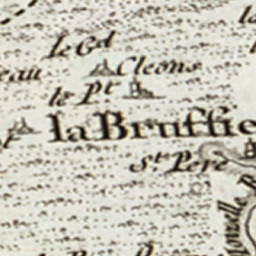 le Gd
Cleons
le Pt
la Bruffie
St. Pere